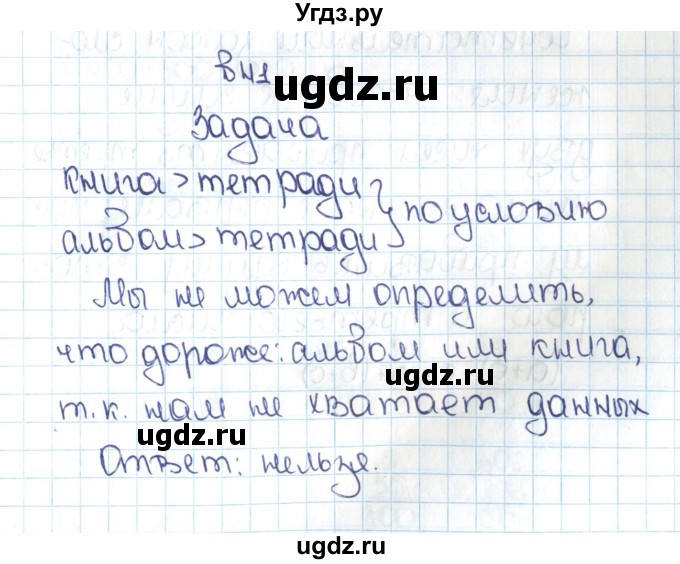 Угдз.ру
в41
ugdz.ru
Задача
книга > тетради
альбом > тетради } по условию
Мы не можем определить,
что дороже: альбом или книга,
ugdz.ru
т.к. нам не хватает данных
ugdz.ru
Ответ: нельзя.
ugdz.ru